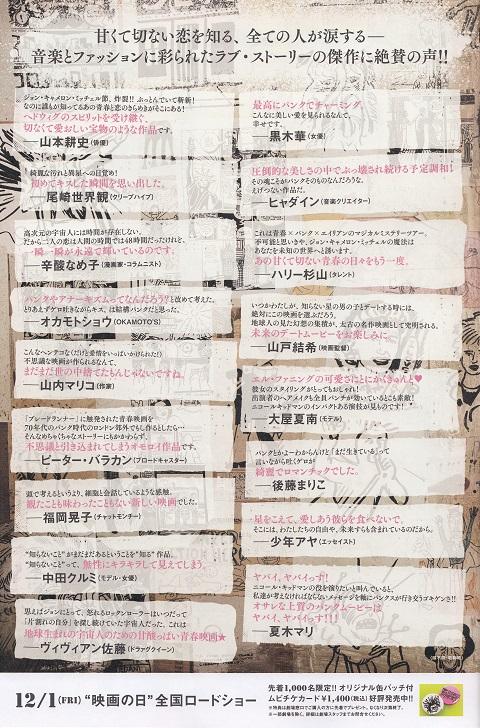 甘くて切ない恋を知る、全ての人が涙する―
音楽とファッションに彩られたラブ・ストーリーの傑作に絶賛の声!!
ジョン・キャメロン・ミッチェル節、炸裂!! ぶっとんでいて斬新!
なのに誰もが知ってるあの青春と恋のきらめきがそこにある!
ヘドウィグのスピリットを受け継ぐ、
切なくて愛おしい宝物のような作品です。
―山本耕史(俳優)
綺麗な汚れと異星への目覚め!
初めてキスした瞬間を思い出した。
―尾崎世界観(クリープハイプ)
高次元の宇宙人には時間が存在しない。
だから二人の恋は人間の時間では48時間だったけれど、
一瞬一瞬が永遠で輝いているのです。
―辛酸なめ子(漫画家・コラムニスト)
パンクやアナーキズムってなんだろう?と改めて考えた。
とりあえずゲロ吐きながらキス、は結構パンクだと思った。
―オカモトショウ(OKAMOTO'S)
こんなヘンテコな(だけど愛情をいっぱいかけられた!)
不思議な映画が作られるなんて、
まだまだ世の中捨てたもんじゃないですね。
―山内マリコ(作家)
「ブレードランナー」に触発された青春映画を
70年代のパンク時代のロンドン郊外でもし作るとしたら…
そんなめちゃくちゃなストーリーにもかかわらず、
不思議と引き込まれてしまうオモロイ作品です。
―ピーター・バラカン(ブロードキャスター)
頭で考えるというより、細胞と会話しているような感触。
観たことも味わったこともない新しい映画でした。
―福岡晃子(チャットモンチー)
“知らないこと”がまだまだあるということを“知る”作品。
“知らないこと”って、無性にキラキラして見えてしまう。
―中田クルミ(モデル・女優)
思えばジョンにとって、怒れるロックンローラーはいつだって
「片割れの自分」を探し続けていた宇宙人だった。これは
地球生まれの宇宙人のための甘酸っぱい青春映画★
―ヴィヴィアン佐藤(ドラァグクイーン)
最高にパンクでチャーミング。
こんなに美しい愛を見られるなんて、
幸せです。
―黒木華(女優)
圧倒的な美しさの中でぶっ壊され続ける予定調和!
その魂こそがパンクそのものなんだろうな。
えげつない作品だ。
―ヒャダイン(音楽クリエイター)
これは青春×パンク×エイリアンのマジカルミステリーツアー。
不可能と思いきや、ジョン・キャメロン・ミッチェルの魔法は
あなたを未知の世界へと誘います。
あの甘くて切ない青春の日々をもう一度。
―ハリー杉山(タレント)
いつかわたしが、知らない星の男の子とデートする時には、
絶対にこの映画を選ぶだろう。
地球人の見た幻想の集積が、太古の名作映画として発明される、
未来のデートムービーをお楽しみに。
―山戸結希(映画監督)
エル・ファニングの可愛さとにかくきゅんと♥
彼女のスタイリングがとってもおしゃれ!
出演者のヘアメイクも全員パンチが効いているところも素敵!
ニコールキッドマンのインパクトある演技が見ものです!
―大屋夏南(モデル)
パンクとかよーわからんけど「まだ生きている」って
言いながら吐くゲロが
綺麗でロマンチックでした。
―後藤まりこ
星をこえて、愛しあう彼らを食べないで。
そこには、わたしたちの自由や、未来すらも含まれているのだから。
―少年アヤ(エッセイスト)
ヤバイ、ヤバイっす!
ニコール・キッドマンの役を演りたいと叫んでいると、
私達が考えなければならないメッセージを軸にパンクスが行き交うゴキゲンさ!!
オサレな上質のパンクムービーは
ヤバイ、ヤバイっす!!!
―夏木マリ
12/1(FRI) “映画の日”全国ロードショー
先着1,000名限定!! オリジナル缶バッチ付
ムビチケカード ¥1,400(税込) 好評発売中!!
※特典は劇場窓口でご購入の方に先着でプレゼント。なくなり次第終了。
※一部劇場を除く。詳細は劇場スタッフまでお問合せください。